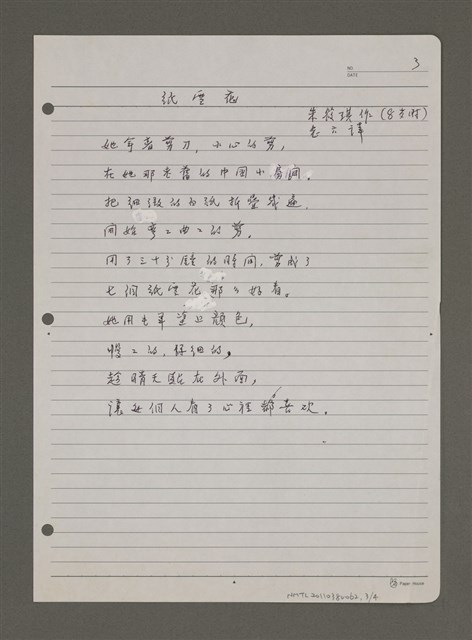 NO.
3
DATE
紙雪花
朱筱琪作(8
她拿着剪刀,小心的剪,
在她那老舊的中國小房間。
把細微的白紙折疊幾遍
開始彎彎曲曲的剪。
用了三十分鐘的時間,剪成了
七個紙雪花那么好看。
她用毛筆塗上顏色,
慢慢的,仔細的,
趁晴天貼在外面,
讓每個人看了心裡都喜欢。
Paper House
NMTL20110380062, 3/4